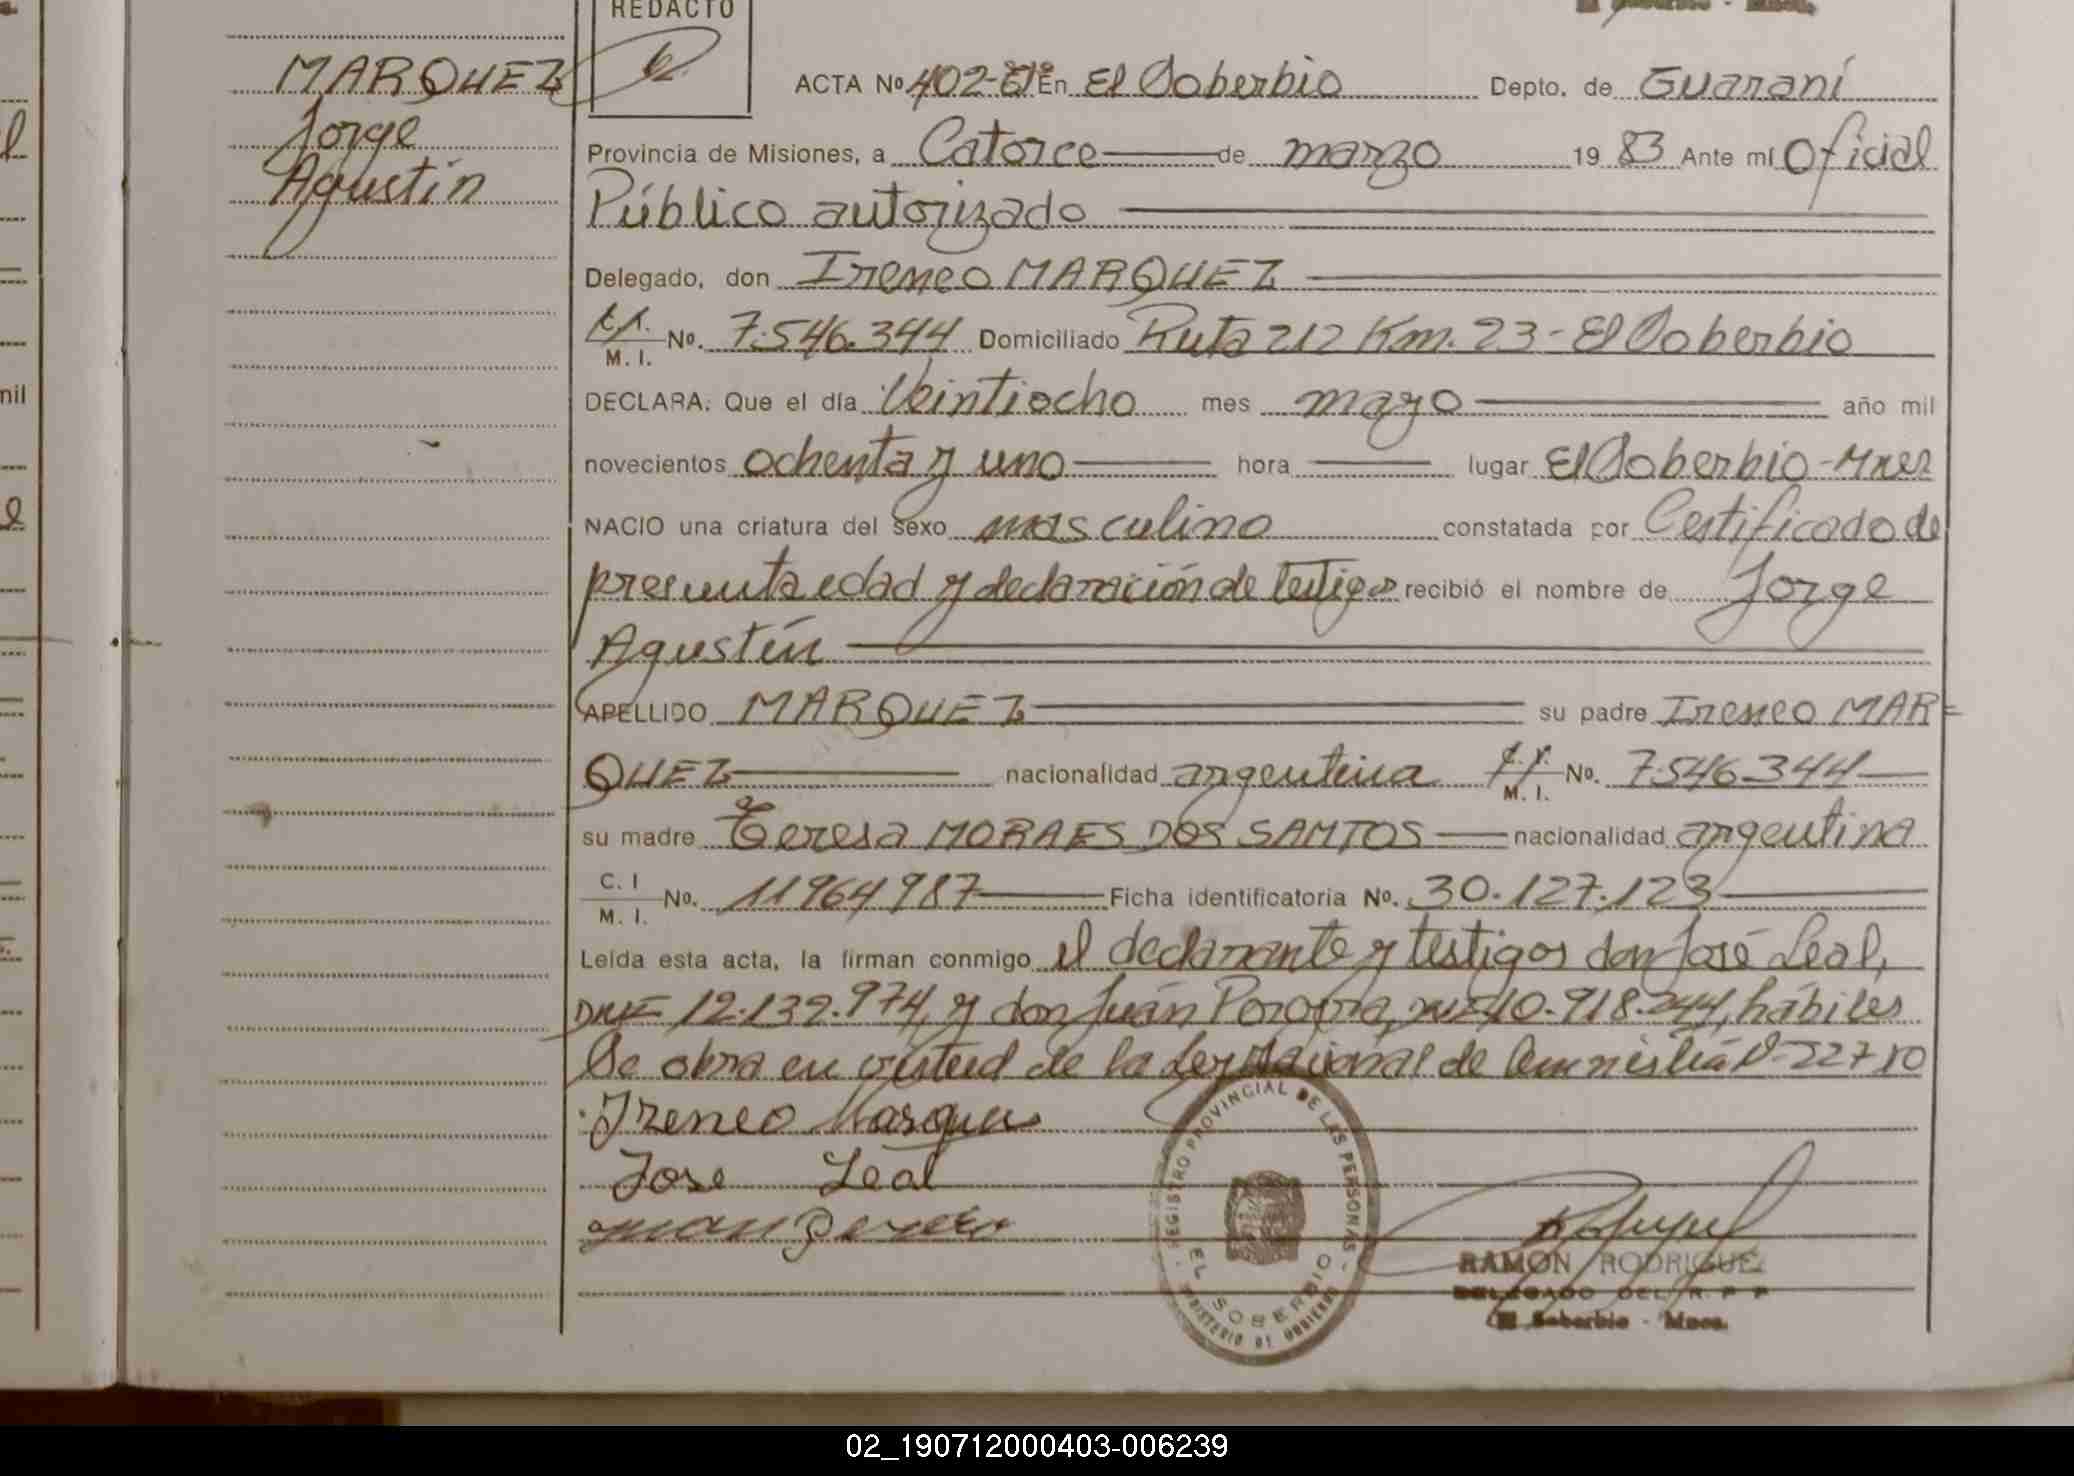 REDACTO
MARQUEZ
Jorge
Agustín
ACTA Nº 402- En El Soberbio Depto. de Guaraní
Provincia de Misiones, a Catorce de marzo 19 83 Ante mí Oficial
Público autorizado
Delegado, don Ireneo MARQUEZ
M. I. No. 7.546.344 Domiciliado Ruta 212 Km. 23 - El Soberbio
DECLARA: Que el día Veintiocho mes mayo año mil
novecientos ochenta y uno hora lugar El Soberbio - Mnes
NACIO una criatura del sexo masculino constatada por Certificado de
presunta edad y declaración de testigos recibió el nombre de Jorge
Agustín
APELLIDO MARQUEZ su padre Ireneo MAR=
QUEZ nacionalidad argentina M. I. No. 7.546.344
su madre Teresa MORAES DOS SANTOS nacionalidad argentina
C. I
M. I. No. 11964987 Ficha identificatoria No. 30.127.123
Leída esta acta, la firman conmigo el declarante y testigos don José Leal,
DNI= 12.132.974, y don Juán 10.918.244, hábiles
Se obra en virtud de la Ley Nacional de Amnistía 22710
Ireneo Marquez
Jose Leal
REGISTRO PROVINCIAL DE LAS PERSONAS
EL SOBERBIO
MINISTERIO DE GOBIERNO
RAMON RODRIGUEZ
DELEGADO DEL R. P. P
El Soberbio - Mnes.
mil
02_190712000403-006239